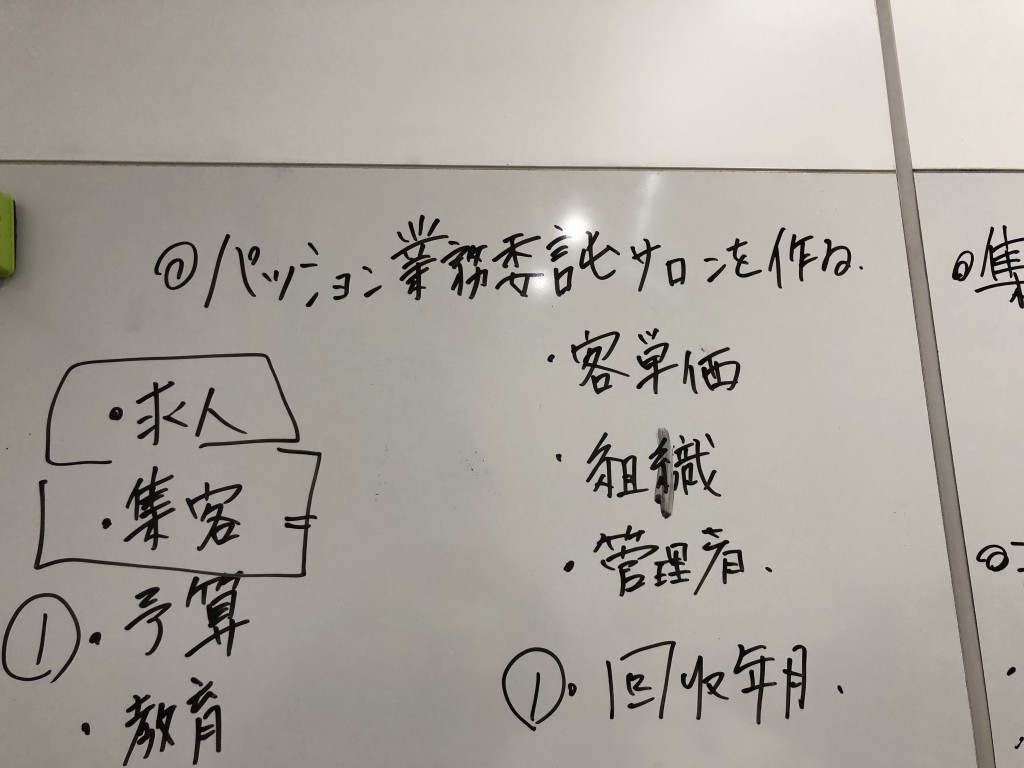 パッション業務委託サロンを作る.
・求人
・集客
①・予算
・教育
・客単価
・組織
・管理者.
①・回収年月.
集